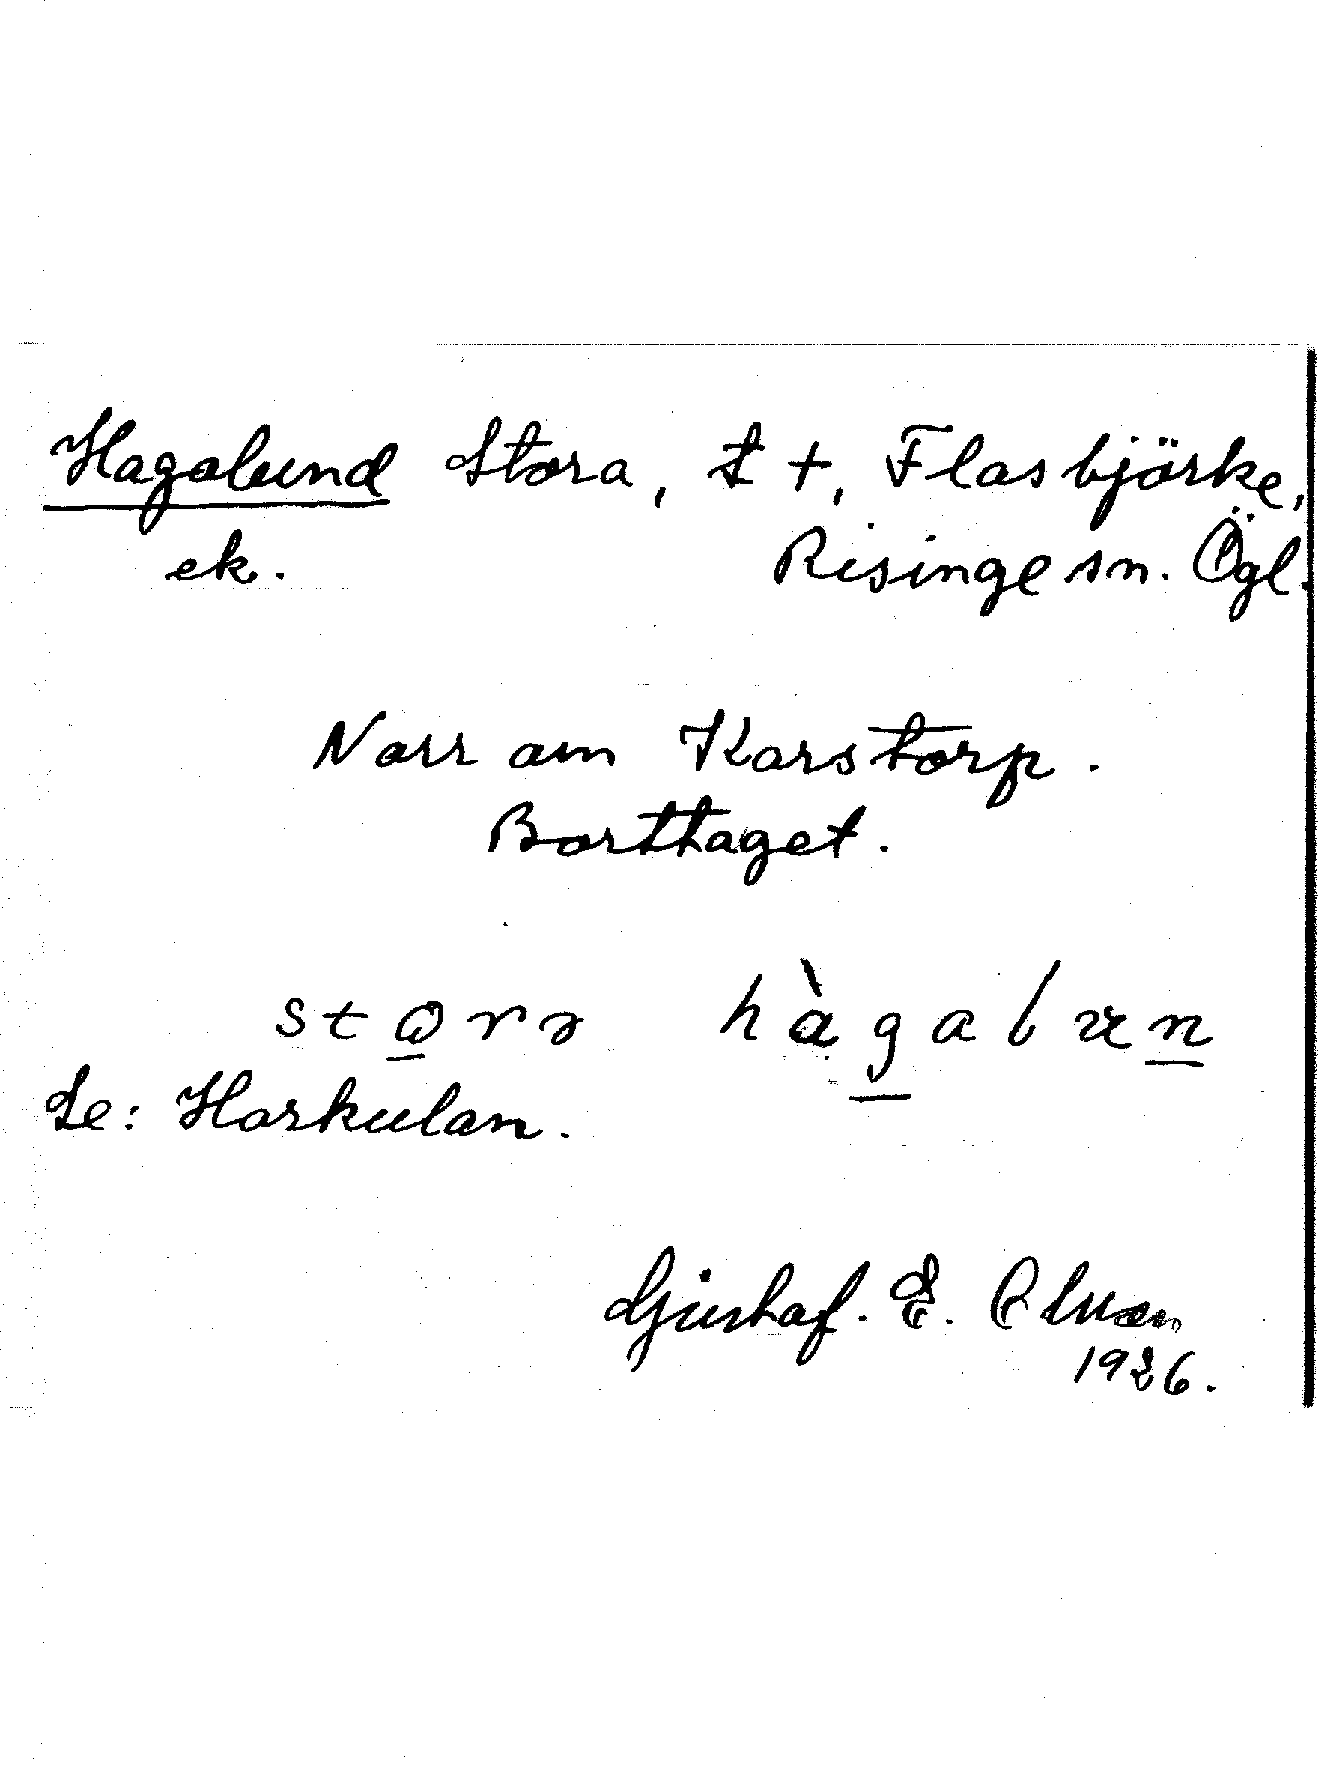 Hagalund Stora, t +, Flasbjörke,
ek. Risinge sn. Ögl.
Norr om Karstorp.
Borttaget.
hàgalun
Se: Harkulan.
Gustaf. E.
1926.